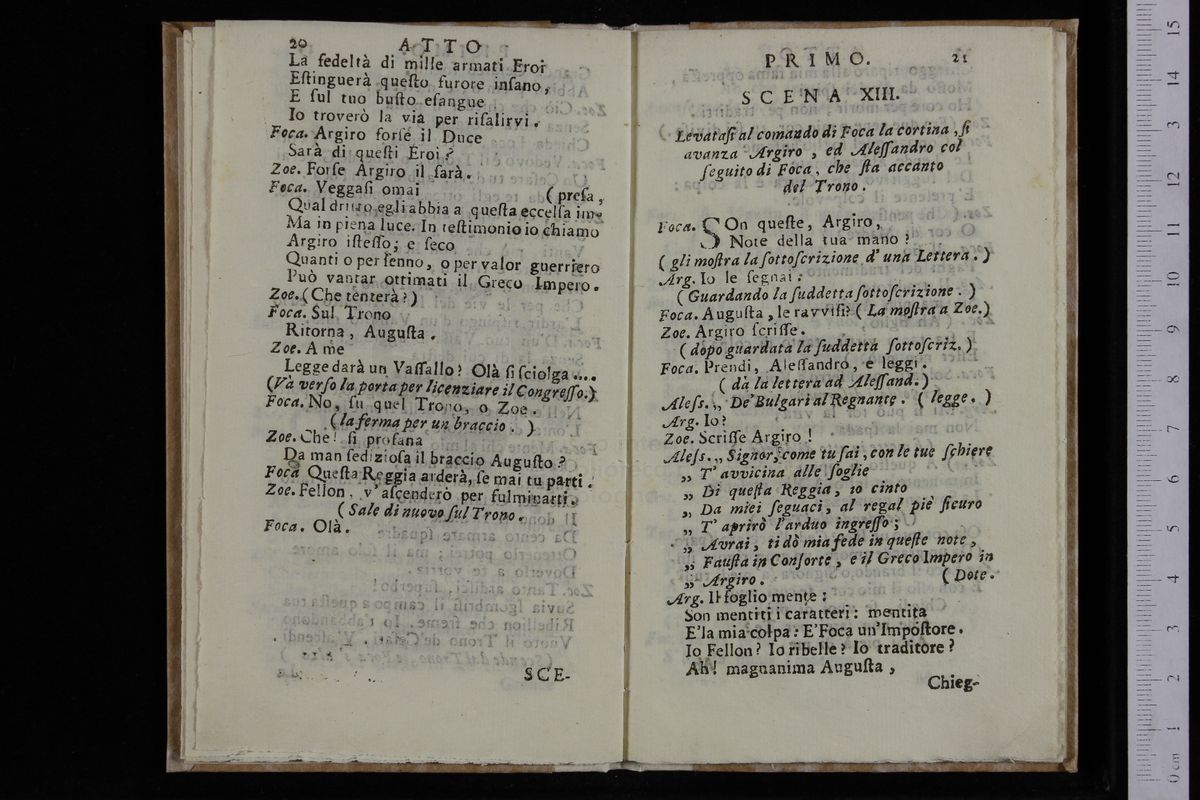 20 ATTO
La fedeltà di mille armati Eroi
Eſtinguerà queſto furore inſano,
E ſul tuo buſto eſangue
Io troverò la via per riſalirvi.
Foca. Argiro forſe il Duce
Sarà di queſti Eroi?
Zoe. Forſe Argiro il ſarà.
Foca. Veggaſi omai (preſa,
Qual dritto egli abbia a queſta eccelſa im-
Ma in piena luce. In teſtimonio io chiamo
Argiro iſteſſo; e ſeco
Quanti o per ſenno, o per valor guerriero
Può vantar ottimati il Greco Impero.
Zoe. (Che tenterà?)
Foca. Sul Trono
Ritorna, Auguſta.
Zoe. A me
Legge darà un Vaſſallo? Olà ſi ſciolga....
(Và verſo la porta per licenziare il Congreſſo.)
Foca. No, ſu quel Trono, o Zoe.
(la ferma per un braccio.)
Zoe. Che! ſi profana
Da man ſedizioſa il braccio Auguſto?
Foca Queſta Reggia arderà, ſe mai tu parti.
Zoe. Fellon, v'aſcenderò per fulminarti.
(Sale di nuovo ſul Trono.
Foca. Olà.
SCE-
PRIMO. 21
SCENA XIII.
Levataſi al comando di Foca la cortina, ſi
avanza Argiro, ed Aleſſandro col
ſeguito di Foca, che ſta accanto
del Trono.
Foca. SOn queſte, Argiro,
Note della tua mano?
(gli moſtra la ſottoſcrizione d'una Lettera.)
Arg. Io le ſegnai:
(Guardando la ſuddetta ſottoſcrizione.)
Foca. Auguſta, le ravviſi? (La moſtra a Zoe.)
Zoe. Argiro ſcriſſe.
(dopo guardata la ſuddetta ſottoſcriz.)
Foca. Prendi, Aleſſandro, e leggi.
(dà la lettera ad Aleſſand.)
Aleſs. „ De'Bulgari al Regnante. (legge.)
Arg. Io?
Zoe. Scriſſe Argiro!
Aleſs. „ Signor, come tu ſai, con le tue ſchiere
„ T'avvicina alle ſoglie
„ Di queſta Reggia, io cinto
„ Da miei ſeguaci, al regal piè ſicuro
„ T'aprirò l'arduo ingreſſo;
„ Avrai, ti dò mia fede in queſte note,
„ Fauſta in Conſorte, e il Greco Impero in
„ Argiro. (Dote.
Arg. Il foglio mente:
Son mentiti i caratteri: mentita
E'la mia colpa: E'Foca un'Impoſtore.
Io Fellon? Io ribelle? Io traditore?
Ah! magnanima Auguſta,
Chieg-